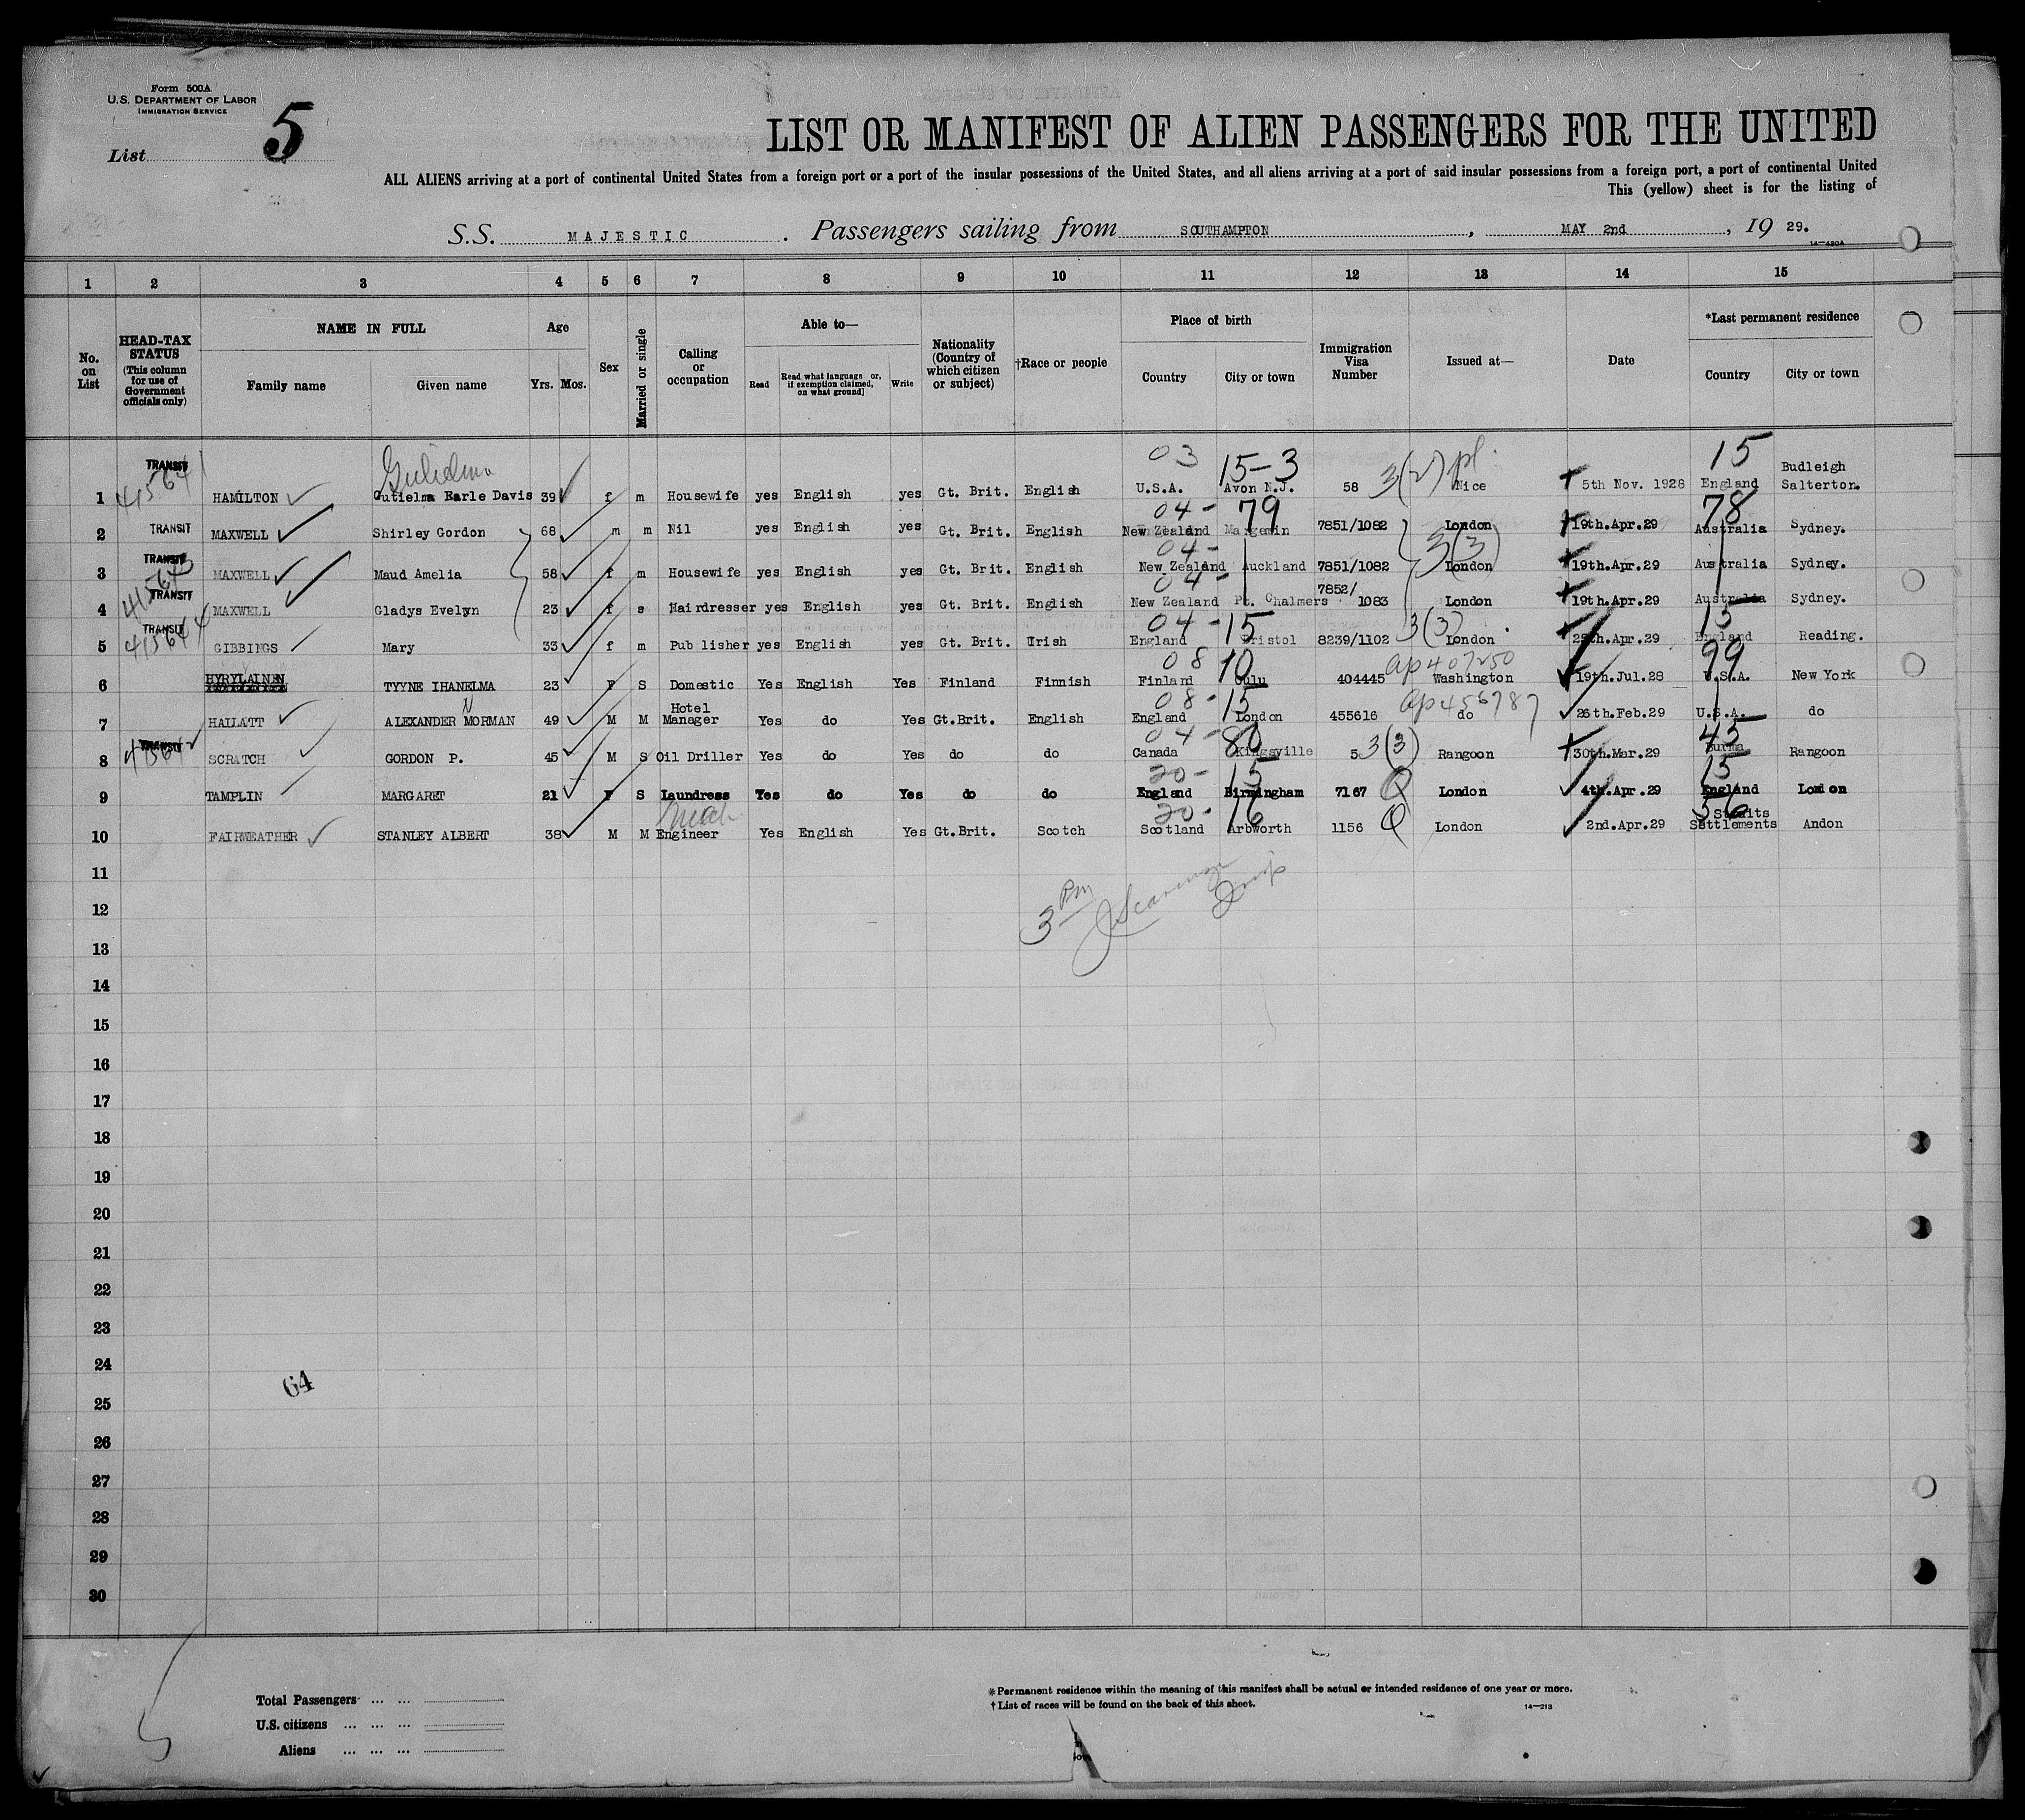 Form 500A
U.S. DEPARTMENT OF LABOR
IMMIGRATION SERVICE
List 5
LIST OR MANIFEST OF ALIEN PASSENGERS FOR THE UNITED
ALL ALIENS arriving at a port of continental United States from a foreign port or a port of the insular possessions of the United States, and all aliens arriving at a port of said insular possessions from a foreign port, a port of continental United
This (yellow) sheet is for the listing of
S.S. MAJESTIC. Passengers sailing from SOUTHAMPTON, MAY 2nd, 19 29.
14-430A
1 2 3 4 5 6 7 8 9 10 11 12 13 14 15
No. on List
HEAD-TAX STATUS (This column for use of Government officials only)
NAME IN FULL
Family name Given name
Age
Yrs. Mos.
Sex
Married or single
Calling or occupation
Able to—
Read Read what language or, if exemption claimed, on what ground] Write
Nationality (Country of which citizen or subject)
†Race or people
Place of birth
Country City or town
Immigration Visa Number
Issued at—
Date
*Last permanent residence
Country City or town
Gulielma
03 15-3 3(2) pl. 15
1 TRANSIT HAMILTON Gutielma Earle Davis 39 f m Housewife yes English yes Gt. Brit. English U.S.A. Avon N.J. 58 Nice 5th Nov. 1928 England Budleigh Salterton.
04- 79 78
2 TRANSIT MAXWELL Shirley Gordon 68 m m Nil yes English yes Gt. Brit. English New Zealand 7851/1082 London 19th.Apr.29 Australia Sydney.
04- 3(3)
3 TRANSIT 41564 MAXWELL Maud Amelia 58 f m Housewife yes English yes Gt. Brit. English New Zealand Auckland 7851/1082 London 19th.Apr.29 Australia Sydney.
04-
4 TRANSIT MAXWELL Gladys Evelyn 23 f s Hairdresser yes English yes Gt. Brit. English New Zealand Pt. Chalmers 7852/1083 London 19th.Apr.29 Australia Sydney.
04-15 3(3) 15
5 TRANSIT GIBBINGS Mary 33 f m Publisher yes English yes Gt. Brit. Irish England Bristol 8239/1102 London 25th.Apr.29 England Reading.
08 10 ap 407250 99
6 HYRYLAINEN TYYNE IHANELMA 23 F S Domestic Yes English Yes Finland Finnish Finland Oulu 404445 Washington 19th.Jul.28 U.S.A. New York
N 08-15 ap 456787
7 HAILATT ALEXANDER MORMAN 49 M M Hotel Manager Yes do Yes Gt.Brit. English England London 455616 do 26th.Feb.29 U.S.A. do
04-80 3(3) 45
8 TRANSIT SCRATCH GORDON P. 45 M S Oil Driller Yes do Yes do do Canada Kingsville 5 Rangoon 30th.Mar.29 Burma Rangoon
20-15 Q 15
9 TAMPLIN MARGARET 21 F S Laundress Yes do Yes do do England Birmingham 7167 London 4th.Apr.29 England London
Mech 20-16 Q 56
10 FAIRWEATHER STANLEY ALBERT 38 M M Engineer Yes English Yes Gt.Brit. Scotch Scotland Arbworth 1156 London 2nd.Apr.29 Straits Settlements Andon
11
3 Pm
12
13
14
15
16
17
18
19
20
21
22
23
24
64
25
26
27
28
29
30
Total Passengers ... ...
U.S. citizens ... ... ...
Aliens ... ... ...
*Permanent residence within the meaning of this manifest shall be actual or intended residence of one year or more.
†List of races will be found on the back of this sheet. 14-213